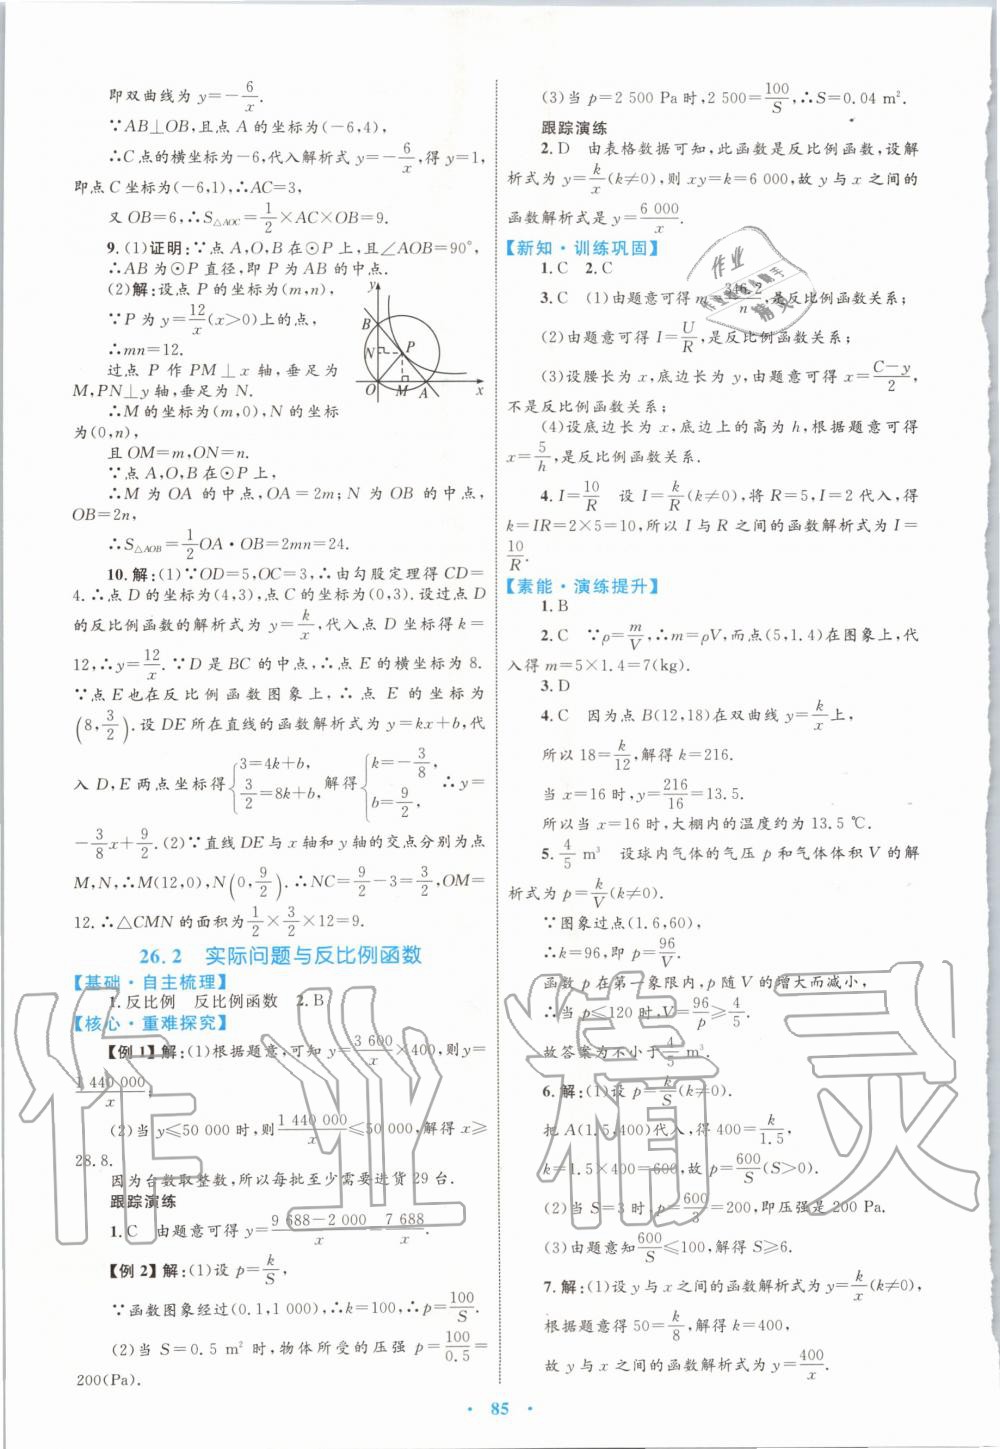 即双曲线为 y=-6/x.
∵AB⊥OB,且点 A 的坐标为(-6,4),
∴C 点的横坐标为-6,代入解析式 y=-6/x,得 y=1,
即点 C 坐标为(-6,1),∴AC=3,
又 OB=6,∴S△AOC=1/2×AC×OB=9.
9.(1)证明:∵点 A,O,B 在⊙P 上,且∠AOB=90°,
∴AB 为⊙P 直径,即 P 为 AB 的中点.
(2)解:设点 P 的坐标为(m,n),
∵P 为 y=12/x(x>0)上的点,
∴mn=12.
过点 P 作 PM⊥x 轴,垂足为
M,PN⊥y 轴,垂足为 N.
∴M 的坐标为(m,0),N 的坐标
为(0,n),
且 OM=m,ON=n.
∵点 A,O,B 在⊙P 上,
∴M 为 OA 的中点,OA=2m;N 为 OB 的中点,
OB=2n,
∴S△AOB=1/2OA·OB=2mn=24.
y
B
N
P
O
M
A
x
10.解:(1)∵OD=5,OC=3,∴由勾股定理得 CD=
4.∴点 D 的坐标为(4,3),点 C 的坐标为(0,3).设过点 D
的反比例函数的解析式为 y=k/x,代入点 D 坐标得 k=
12,∴y=12/x.∵D 是 BC 的中点,∴点 E 的横坐标为 8.
∵点 E 也在反比例函数图象上,∴点 E 的坐标为
(8,3/2).设 DE 所在直线的函数解析式为 y=kx+b,代
入 D,E 两点坐标得{3=4k+b, 3/2=8k+b, 解得{k=-3/8, b=9/2, ∴y=
-3/8x+9/2.(2)∵直线 DE 与 x 轴和 y 轴的交点分别为点
M,N,∴M(12,0),N(0,9/2).∴NC=9/2-3=3/2,OM=
12.∴△CMN 的面积为1/2×3/2×12=9.
26.2 实际问题与反比例函数
【基础·自主梳理】
1.反比例 反比例函数 2.B
【核心·重难探究】
【例 1】解:(1)根据题意,可知 y=3 600/x×400,则 y=
1 440 000/x;
(2)当 y≤50 000 时,则1 440 000/x≤50 000,解得 x≥
28.8.
因为台数取整数,所以每批至少需要进货 29 台.
跟踪演练
1.C 由题意可得 y=9 688-2 000/x=7 688/x.
【例 2】解:(1)设 p=k/S,
∵函数图象经过(0.1,1 000),∴k=100,∴p=100/S.
(2)当 S=0.5 m² 时,物体所受的压强 p=100/0.5=
200(Pa).
(3)当 p=2 500 Pa 时,2 500=100/S,∴S=0.04 m².
跟踪演练
2.D 由表格数据可知,此函数是反比例函数,设解
析式为 y=k/x(k≠0),则 xy=k=6 000,故 y 与 x 之间的
函数解析式是 y=6 000/x.
【新知·训练巩固】
1.C 2.C
3.C (1)由题意可得 m=346.2/n,是反比例函数关系;
(2)由题意可得 I=U/R,是反比例函数关系;
(3)设腰长为 x,底边长为 y,由题意可得 x=C-y/2,
不是反比例函数关系;
(4)设底边长为 x,底边上的高为 h,根据题意可得
x=5/h,是反比例函数关系.
4.I=10/R 设 I=k/R(k≠0),将 R=5,I=2 代入,得
k=IR=2×5=10,所以 I 与 R 之间的函数解析式为 I=
10/R.
【素能·演练提升】
1.B
2.C ∵ρ=m/V,∴m=ρV,而点(5,1.4)在图象上,代
入得 m=5×1.4=7(kg).
3.D
4.C 因为点 B(12,18)在双曲线 y=k/x上,
所以 18=k/12,解得 k=216.
当 x=16 时,y=216/16=13.5.
所以当 x=16 时,大棚内的温度约为 13.5 ℃.
5.4/5 m³ 设球内气体的气压 p 和气体体积 V 的解
析式为 p=k/V(k≠0).
∵图象过点(1.6,60),
∴k=96,即 p=96/V.
函数 p 在第一象限内,p 随 V 的增大而减小,
∴当 p≤120 时,V=96/p≥4/5.
故答案为不小于4/5 m³.
6.解:(1)设 p=k/S(k≠0).
把 A(1.5,400)代入,得 400=k/1.5,
k=1.5×400=600,故 p=600/S(S>0).
(2)当 S=3 时,p=600/3=200,即压强是 200 Pa.
(3)由题意知600/S≤100,解得 S≥6.
7.解:(1)设 y 与 x 之间的函数解析式为 y=k/x(k≠0),
根据题意得 50=k/8,解得 k=400,
故 y 与 x 之间的函数解析式为 y=400/x.
作业精灵
· 85 ·